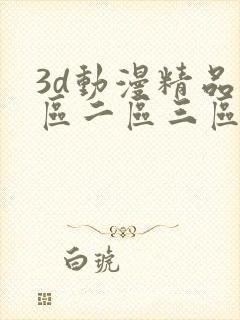 3d動漫精品
區二區三區
白琥